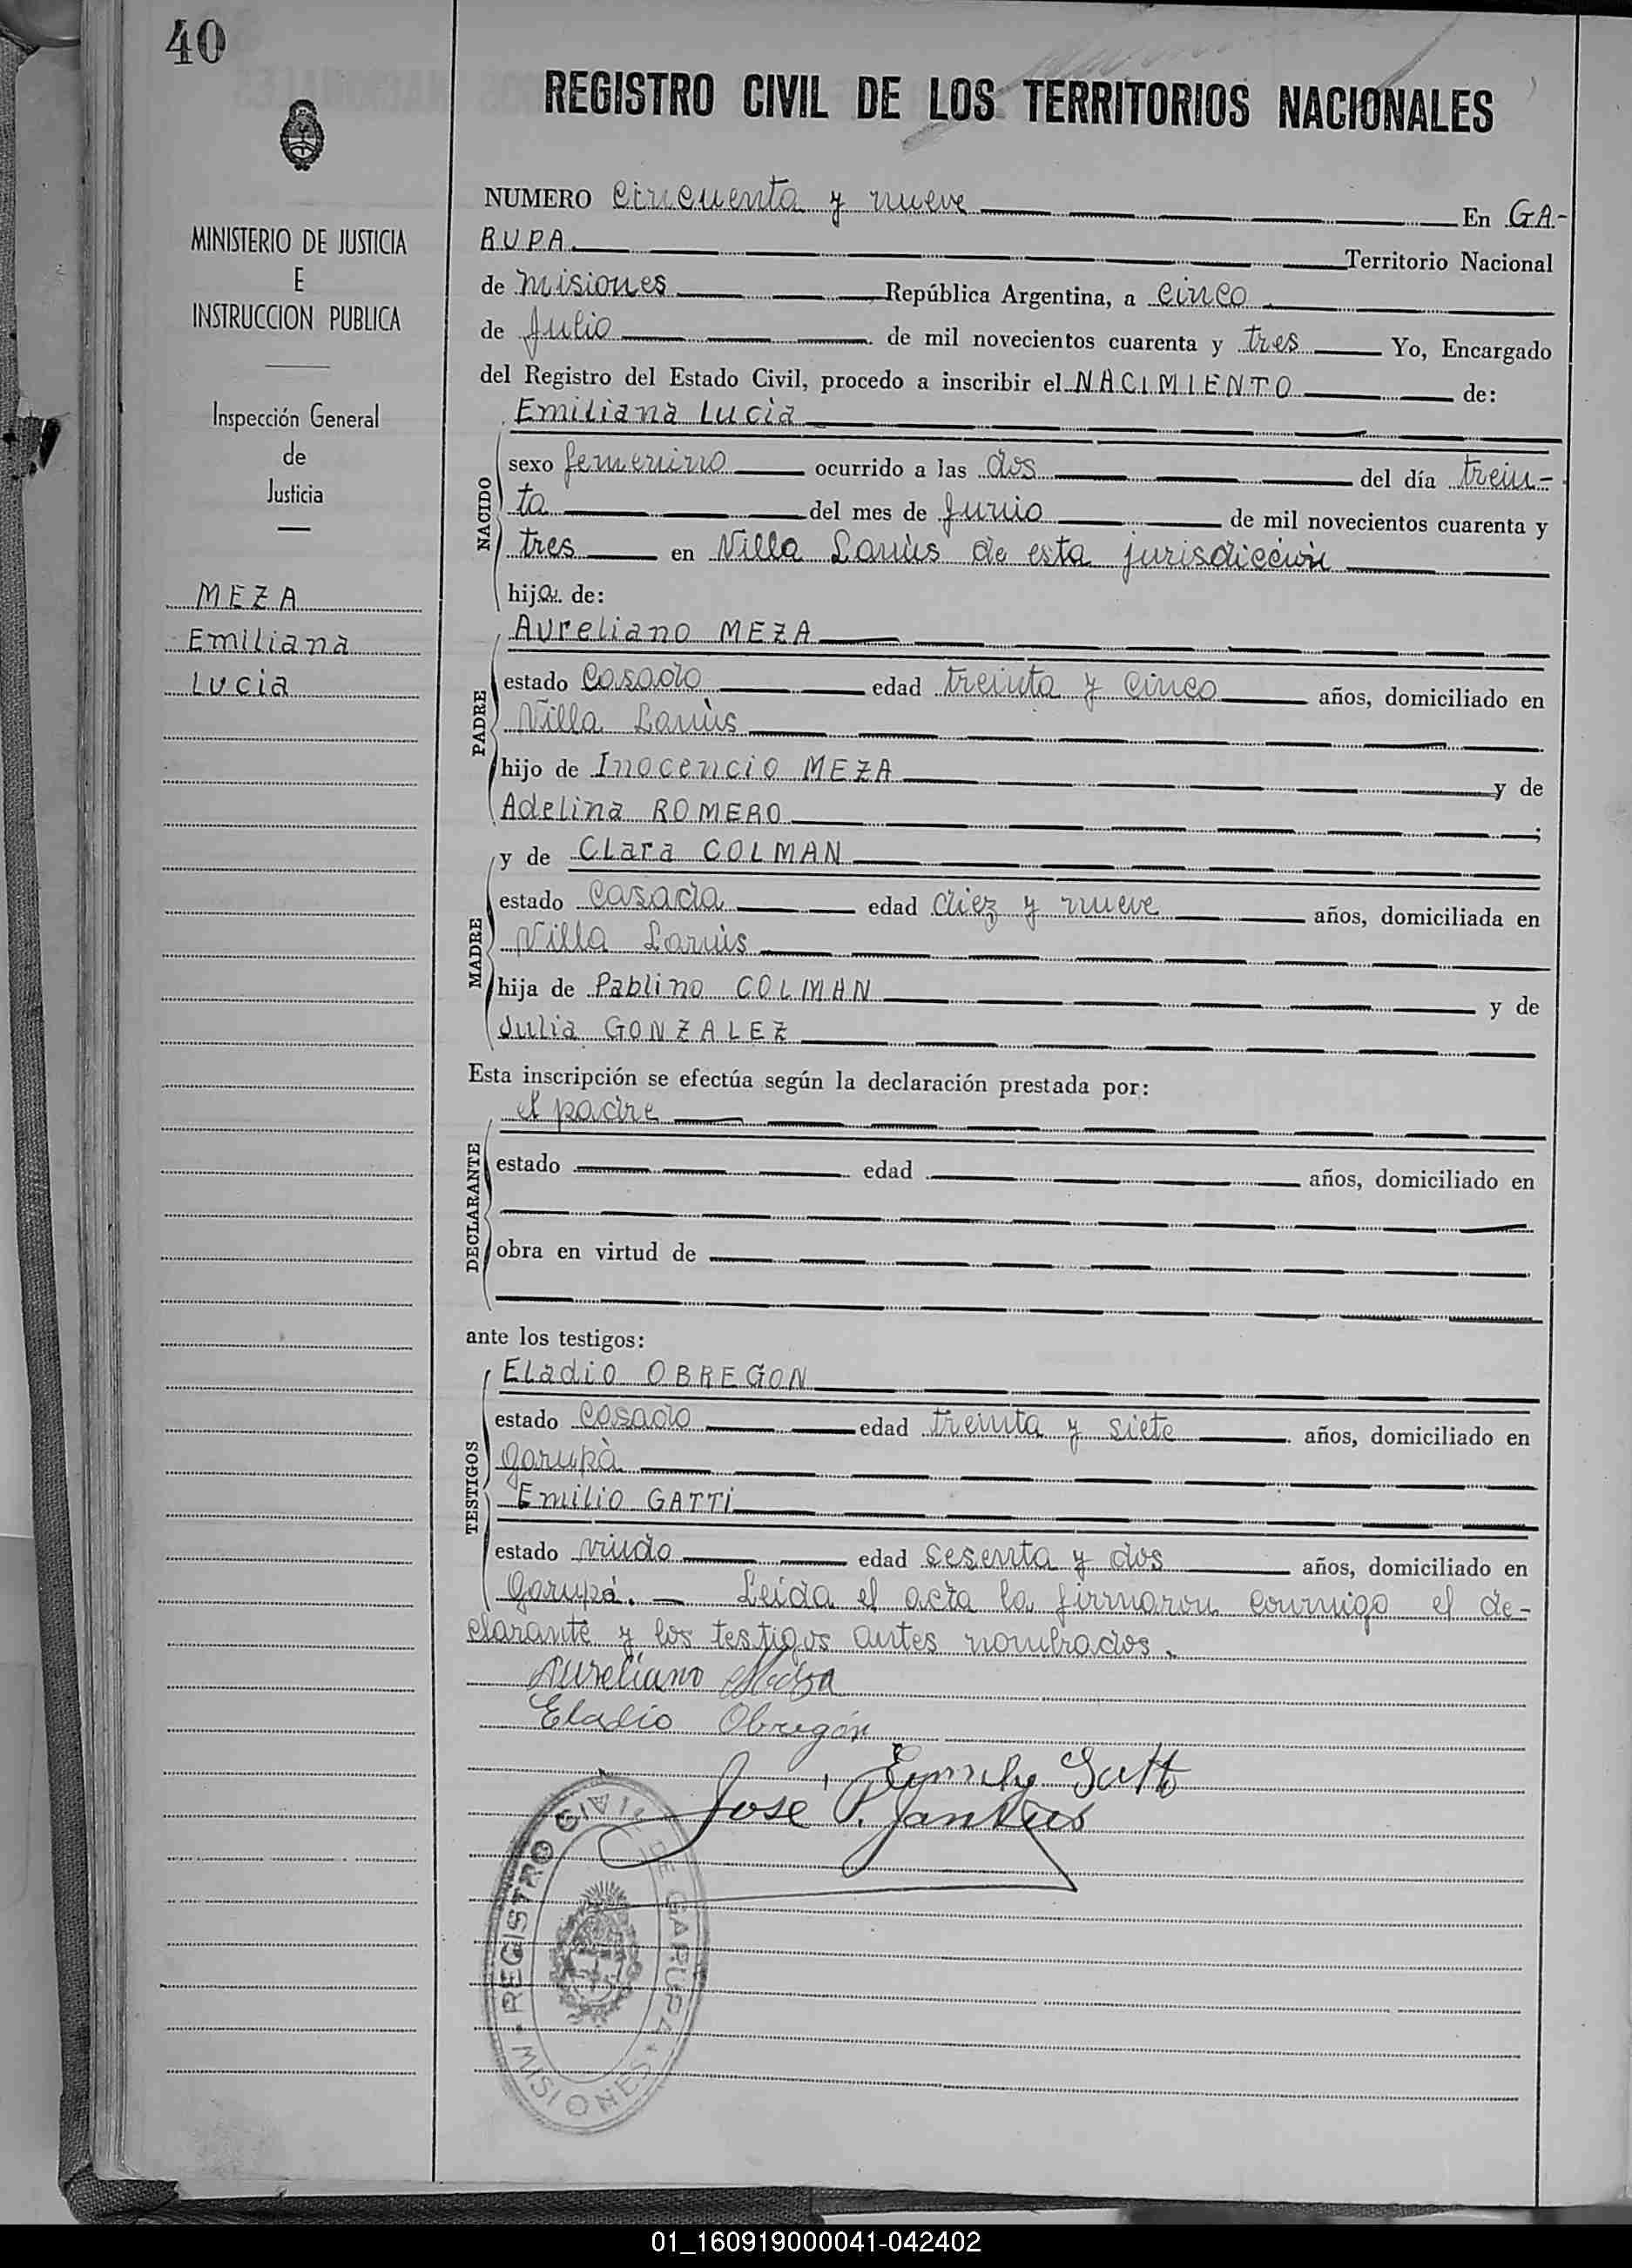 40
REGISTRO CIVIL DE LOS TERRITORIOS NACIONALES
MINISTERIO DE JUSTICIA
E
INSTRUCCION PUBLICA
Inspección General
de
Justicia
MEZA
Emiliana
Lucia
NUMERO cincuenta y nueve En GA-
RUPA Territorio Nacional
de misiones República Argentina, a cinco
de Julio de mil novecientos cuarenta y tres Yo, Encargado
del Registro del Estado Civil, procedo a inscribir el NACIMIENTO de:
NACIDO
Emiliana Lucia
sexo femenino ocurrido a las dos del día trein-
ta del mes de Junio de mil novecientos cuarenta y
tres en Villa Lanùs de esta jurisdicciòn
hija de:
PADRE
Aureliano MEZA
estado casado edad treinta y cinco años, domiciliado en
Villa Lanùs
hijo de Inocencio MEZA y de
Adelina ROMERO ;
MADRE
y de Clara COLMAN
estado casada edad diez y nueve años, domiciliada en
Villa Lanùs
hija de Pablino COLMAN y de
Julia GONZALEZ
Esta inscripción se efectúa según la declaración prestada por:
DECLARANTE
el padre
estado edad años, domiciliado en
obra en virtud de
ante los testigos:
TESTIGOS
Eladio OBREGON
estado casado edad treinta y siete años, domiciliado en
Garupà
Emilio GATTi
estado viudo edad sesenta y dos años, domiciliado en
Garupá. — Leida el acta la firmaron conmigo el de-
clarante y los testigos antes nombrados.
Aureliano
Eladio Obregón
José P.
REGISTRO CIVIL DE GARUPA * MISIONES *
01_160919000041-042402